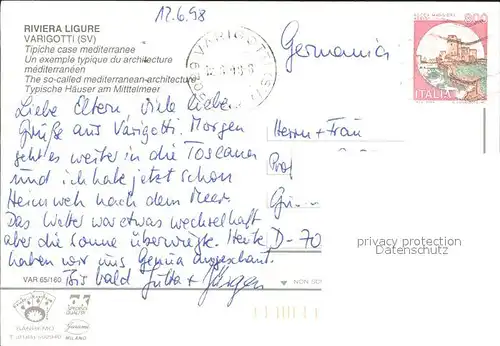 12.6.98
RIVIERA LIGURE
VARIGOTTI (SV)
Tipiche case mediterranee
Un exemple typique du architecture
méditerranéen
The so-called mediterranean-architecture
Typische Häuser am Mittelmeer
Liebe Eltern, viele liebe
Grüße aus Varigotti. Morgen
geht es weiter in die Toscana
und ich habe jetzt schon
Heimweh nach dem Meer.
Das Wetter war etwas wechselhaft
aber die Sonne überwiegte. Heute
haben wir uns Genua angeschaut.
Bis bald Jutta + Jürgen
VAR 65/160
SANREMO
MILANO
VARIGOTTI
Germania
800
ITALIA
Herrn + Frau
Prof
D-70
privacy protection
Datenschutz
NON SC